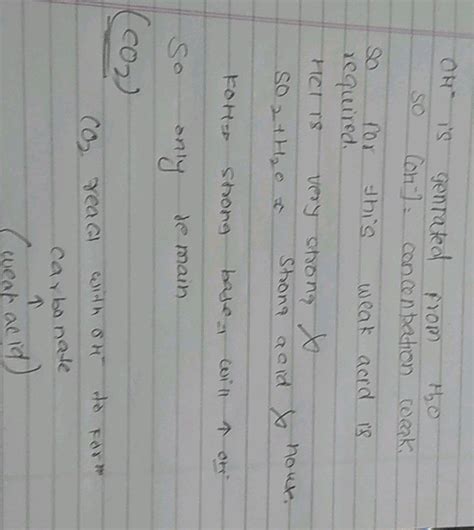 OH⁻ is genrated from H₂O
so [OH⁻] = concentration weak.
so for this weak acid is
required.
HCl is very strong ✗
SO₂ + H₂O = Strong acid ✗
KOH = strong base = with ↑ OH⁻
So only remain
(CO₂)
CO₂ react with OH⁻ to form
carbonate
↑
(weak acid)